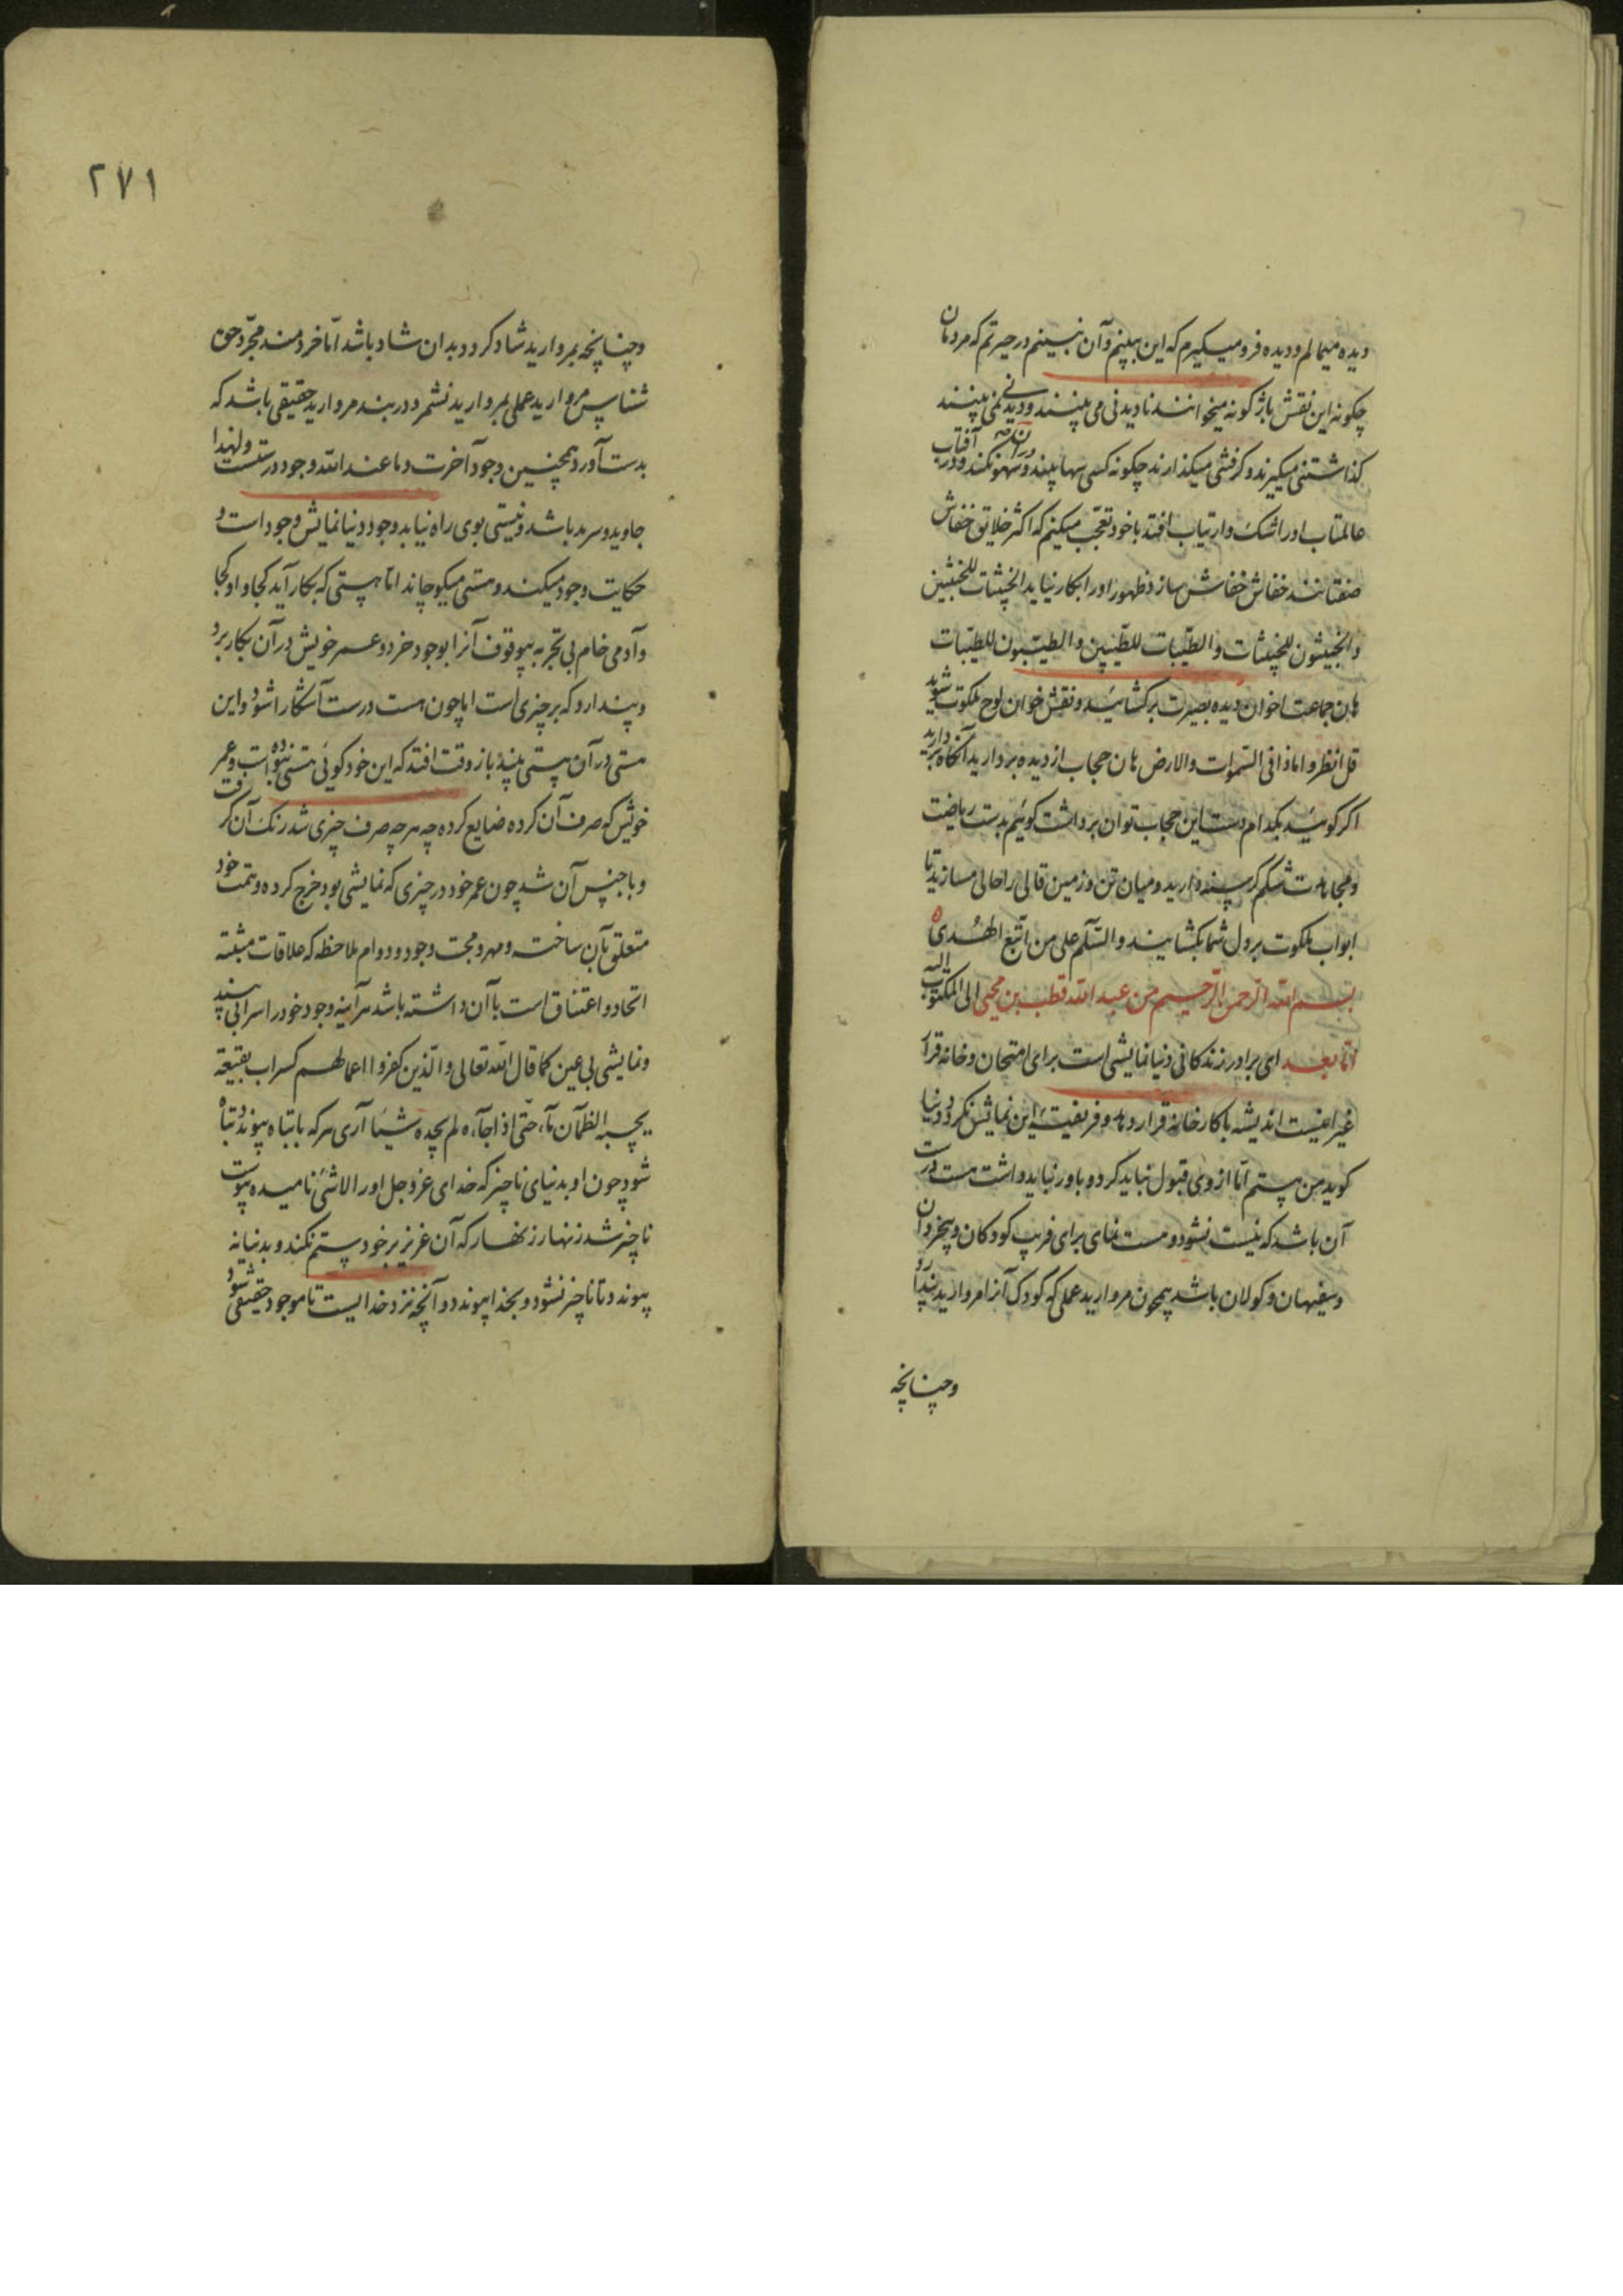 دیده میمالم و دیده فرو میگیرم که این ببینم و آن نبینم در حیرتم که مردمان
چکونه این نقش باژکونه میخوانند نادیدنی می بینند و دیدنی نمی بینند
کذاشتنی میگیرند و گرفتنی میگذارند چکونه کسی سها بیند و سهو نکند و در آفتاب
عالمتاب او را شک و ارتیاب افتد با خود تعجب میکنم که اکثر خلایق خفاش
صفتانند خفاش خفاش سازد ظهور او را بکار نیاید الخبیثات للخبیثین
و الخبیثون للخبیثات و الطیبات للطیبین و الطیبون للطیبات
هان جماعت اخوان دیده بصیرت برگشائید و نقش خوان لوح ملکوت شوید
قل انظروا ماذا فی السموات والارض هان حجاب از دیده بردارید آنگاه
اکر کوئید بکدام دست این حجاب توان برداشت کوئیم بدست ریاضت
و مجاهدت شکم گرسنه دارید و میان تن و زمین قالی را حالی مسازید تا
ابواب ملکوت بر دل شما بکشایند والسلام علی من اتبع الهدی
بسم الله الرحمن الرحیم من عبد الله قطب بن محیی الی المکتوب الیه
اما بعد ای برادر زندکانی دنیا نمایشی است برای امتحان و خانه قرار
غیر اینست اندیشه با کارخانه قرار ده و فریفتهٔ این نمایش نکرد و دنیا
کوید من هستم اما از وی قبول نباید کرد و باور نباید داشت هست درست
آن باشد که نیست نشود و هست نمای برای فریب کودکان و بیخردان
و سفیهان و کولان باشد همچون مروارید عملی که کودک آنرا مروارید پندارد
وچنانچه
۲۷۱
وچنانچه بمروارید شاد کردد بدان شاد باشد اما خردمند مجرد حق
شناس مروارید عملی بمروارید نشمرد و در بند مروارید حقیقی باشد که
بدست آورد همچنین وجود آخرت و ما عند الله وجود درستست و لهذا
جاوید و سرمد باشد و نیستی بوی راه نیابد وجود دنیا نمایش وجود است و
حکایت وجود میکند و هستی میکوچاند اما هستی که بکار آید کجا و او کجا
و آدمی خام بی تجربه بیوقوف آنرا بوجود خرد و عمر خویش در آن بکار برد
و پندارد که بر چیزی است اما چون هست درست آشکارا شود و این
هستی در آن هستی بیند باز وقت افتد که این خود کوئی هستی نبوده است و عمر
خویش که صرف آن کرده ضایع کرده چه هر چه صرف چیزی شد رنک آن گرفت
و با جنس آن شد چون عمر خود در چیزی که نمایشی بود خرج کرده و همت خود
متعلق بآن ساخته و مهر و محبت وجود و دوام ملاحظه که علاقات مثبته
اتحاد و اعتناق است با آن داشته باشد هر آینه وجود خود را سرابی بیند
و نمایشی بی عین کما قال الله تعالی والذین کفروا اعمالهم کسراب بقیعة
یحسبه الظمآن ماء حتی اذا جاءه لم یجده شیئا آری هر که با تباه پیوندد تباه
شود چون او بدنیای ناچیز که خدای عز و جل او را لاشئ نامیده پیوست
ناچیز شد زنهار زنهار که آن عزیز بر خود ستم نکند و بدنیا نه
پیوندد تا ناچیز نشود و بخدا پیوندد و آنچه نزد خدایست تا موجود حقیقی شود